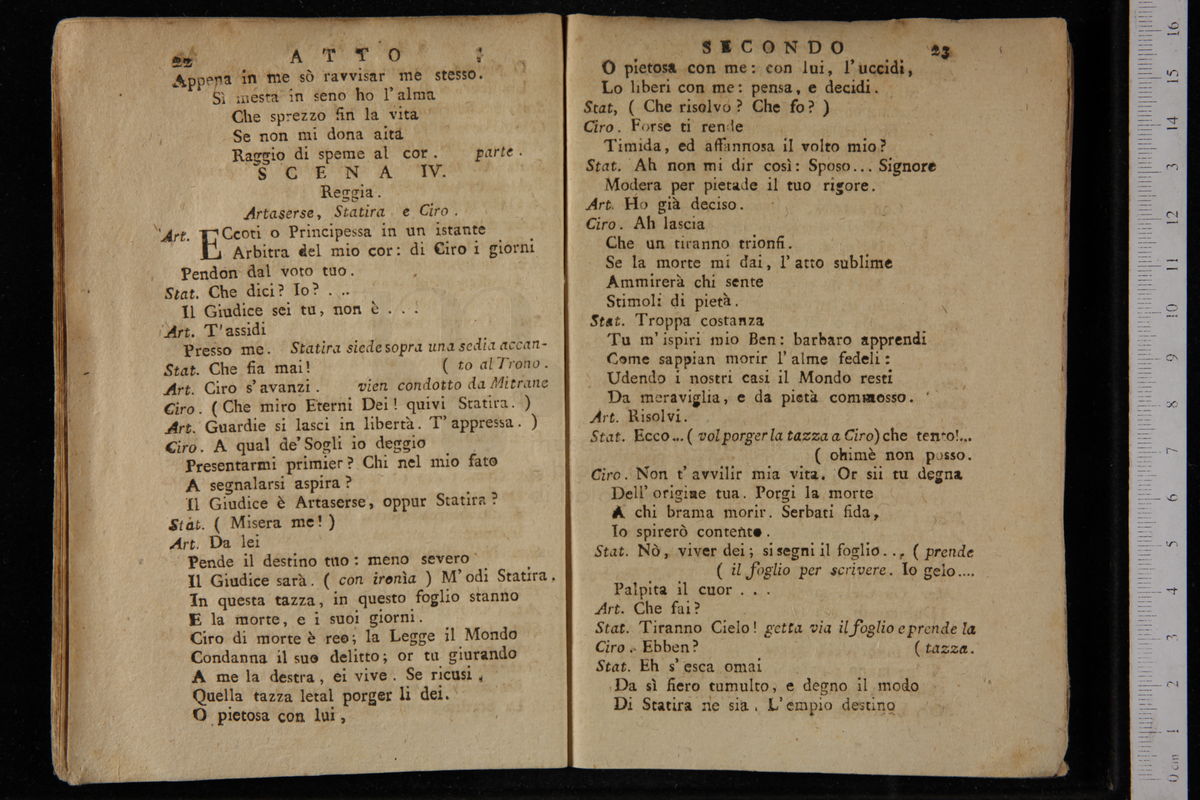 22 ATTO
Appena in me sò ravvisar me stesso.
Sì mesta in seno ho l'alma
Che sprezzo fin la vita
Se non mi dona aita
Raggio di speme al cor. parte.
SCENA IV.
Reggia.
Artaserse, Statira e Ciro.
Art. ECcoti o Principessa in un istante
Arbitra del mio cor: di Ciro i giorni
Pendon dal voto tuo.
Stat. Che dici? Io? . ..
Il Giudice sei tu, non è . . .
Art. T'assidi
Presso me. Statira siede sopra una sedia accan-
Stat. Che fia mai! ( to al Trono.
Art. Ciro s'avanzi. vien condotto da Mitrane
Ciro. (Che miro Eterni Dei! quivi Statira.)
Art. Guardie si lasci in libertà. T'appressa. )
Ciro. A qual de'Sogli io deggio
Presentarmi primier? Chi nel mio fato
A segnalarsi aspira?
Il Giudice è Artaserse, oppur Statira?
Stat. ( Misera me! )
Art. Da lei
Pende il destino tuo: meno severo
Il Giudice sarà. ( con ironìa ) M'odi Statira.
In questa tazza, in questo foglio stanno
E la morte, e i suoi giorni.
Ciro di morte è reo; la Legge il Mondo
Condanna il suo delitto; or tu giurando
A me la destra, ei vive. Se ricusi,
Quella tazza letal porger li dei.
O pietosa con lui,
SECONDO 23
O pietosa con me: con lui, l'uccidi,
Lo liberi con me: pensa, e decidi.
Stat, ( Che risolvo? Che fo? )
Ciro. Forse ti rende
Timida, ed affannosa il volto mio?
Stat. Ah non mi dir così: Sposo... Signore
Modera per pietade il tuo rigore.
Art. Ho già deciso.
Ciro. Ah lascia
Che un tiranno trionfi.
Se la morte mi dai, l'atto sublime
Ammirerà chi sente
Stimoli di pietà.
Stat. Troppa costanza
Tu m'ispiri mio Ben: barbaro apprendi
Come sappian morir l'alme fedeli:
Udendo i nostri casi il Mondo resti
Da meraviglia, e da pietà commosso.
Art. Risolvi.
Stat. Ecco... ( vol porger la tazza a Ciro) che tento!...
( ohimè non posso.
Ciro. Non t'avvilir mia vita. Or sii tu degna
Dell'origine tua. Porgi la morte
A chi brama morir. Serbati fida,
Io spirerò contento.
Stat. Nò, viver dei; si segni il foglio... ( prende
( il foglio per scrivere. Io gelo....
Palpita il cuor . . .
Art. Che fai?
Stat. Tiranno Cielo! getta via il foglio e prende la
Ciro. Ebben? ( tazza.
Stat. Eh s'esca omai
Da sì fiero tumulto, e degno il modo
Di Statira ne sia. L'empio destino
0 cm 1 2 3 4 5 6 7 8 9 10 11 12 13 14 15 16